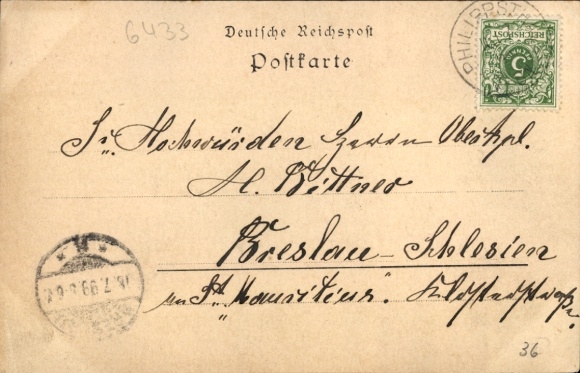 6433
Deutsche Reichspost
Postkarte
PHILIPPST
REICHSPOST
5
Sr. Hochwürden Herrn Oberkpl.
A. Bittner
Breslau-Schlesien
an St. "Mauritius". Klosterstraße.
.7.99
36